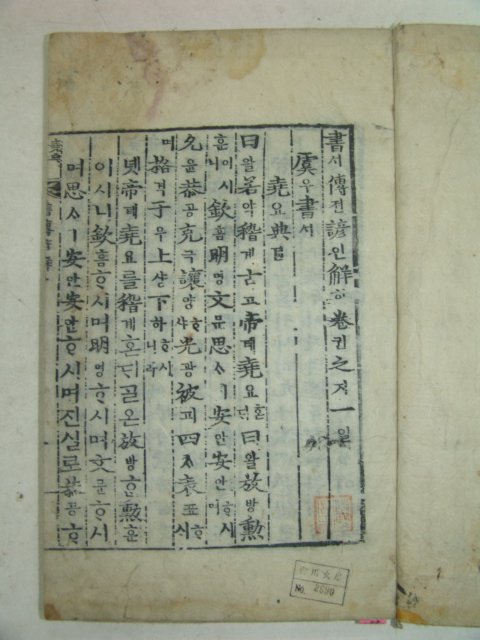 書셔傳젼諺언解ᄒᆡ卷권之지一일
虞우書셔
堯요典뎐
曰왈若약稽계古고帝뎨堯요ᄒᆞᆫᄃᆡ曰왈放방勳
훈이시니欽흠明명文문思ᄉᆞㅣ安안安안ᄒᆞ시며
允윤恭공克극讓양ᄒᆞ샤光광被피四ᄉᆞ表표ᄒᆞ시
며格격于우上샹下하ᄒᆞ시니라
녯帝뎨堯요를稽계혼ᄃᆡ골온放방ᄒᆞᆫ勳훈
이시니欽흠ᄒᆞ시며明명ᄒᆞ시며文문ᄒᆞ시
며思ᄉᆞㅣ安안安안ᄒᆞ시며진실로恭공ᄒᆞ
No.